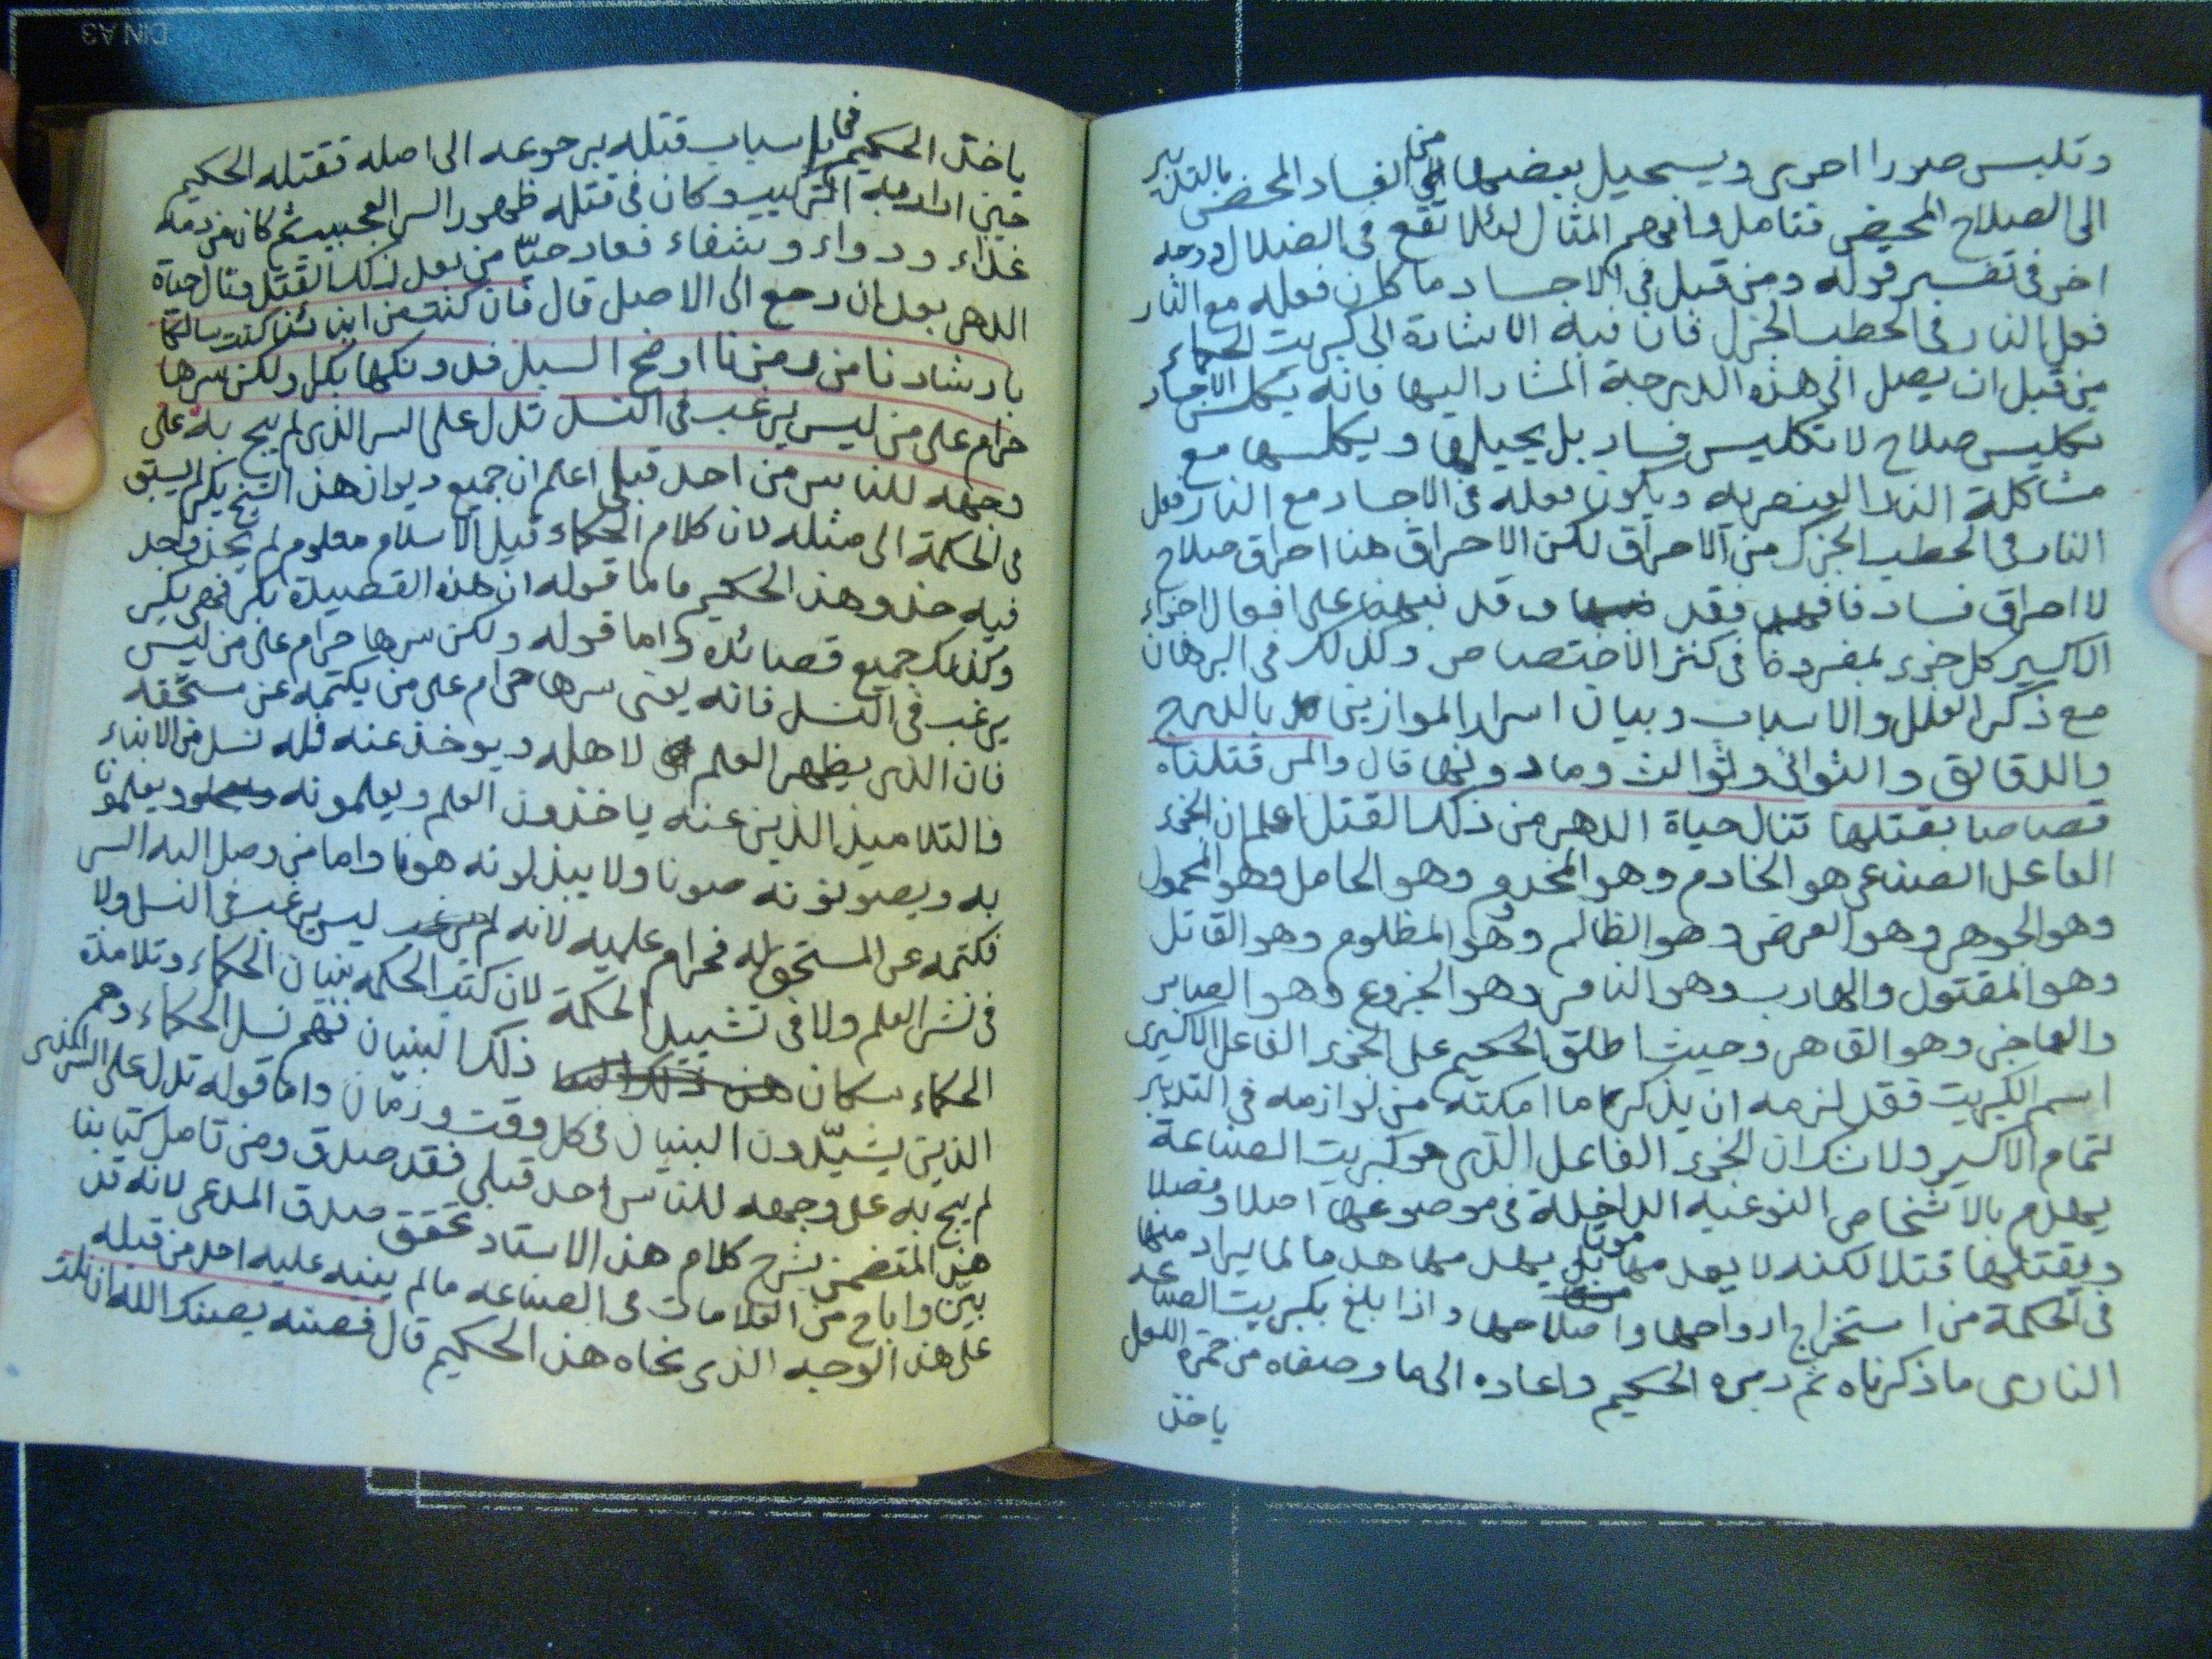 وتلبس صورا اخرى ويستحيل بعضها من الفساد المحض بالتدبير
الى الصلاح المحض فتامل وافهم المثال لئلا تقع في الضلال ووجه
اخر في تفسير قوله ومن قبل في الاجساد ما كان فعله مع النار
فعل النار في الحطب الجزل فان فيه الاشارة الى كبريت الحكماء
من قبل ان يصل الى هذه الدرجة المشار اليها فانه يكلس الاجساد
تكليس صلاح لا تكليس فساد بل يحيلها ويكلسها مع
مشاكلة النار العنصريه ويكون فعله في الاجساد مع النار فعل
النار في الحطب الجزل من الاحراق لكن الاحراق هنا احراق صلاح
لا احراق فساد فافهم فقد وقد نبهنا على افعال اجزاء
الاكسير كل جزء بمفرده في كنز الاختصاص وكذلك في البرهان
مع ذكر العلل والاسباب وبيان اسرار الموازين بالدرج
والدقائق والثواني والثوالث وما دونها قال والمس قتلناه
قصاصا بقتلها تنال حياة الدهر من ذلك القتل اعلم ان الجزء
الفاعل الصناعي هو الخادم وهو المخدوم وهو الحامل وهو المحمول
وهو الجوهر وهو العرض وهو الظالم وهو المظلوم وهو القاتل
وهو المقتول والهارب وهو النافر وهو الجزوع وهو الصابر
والعاجز وهو القاهر وحيث اطلق الحكيم على الجزء الفاعل الاكسيرى
اسم الكبريت فقد لزمه ان يذكر ما امكنه من لوازمه في التدبير
لتمام الاكسير ولا شك ان الجزء الفاعل الذى هو كبريت الصناعة
يهدم بالاشخاص النوعيه الداخلة في موضوعها اصلا وفصلا
ويقتلها قتلا لكنه لا يعدمها بل يهدمها هدما لما يراد منها
في الحكمة من استخراج ارواحها واصلاحها واذا بلغ بكبريت الصناعه
النارى ما ذكرناه ثم دبره الحكيم واعاده الى ما وصفناه من خمرة العول
ياخذ
ياخذ الحكيم في اسباب قتله برجوعه الى اصله فقتله الحكيم
حين اراد به التركيب وكان في قتله ظهور السر العجيب ثم كان من دمه
غذاء ودواء وشفاء فعاد حيّا من بعد ذلك القتل ونال حياة
الدهر بعد ان رجع الى الاصل قال فان كنت من ابنائنا كنت سالكا
بارشادنا من رمزنا اوضح السبل فدونكها بكر ولكن سرها
حرام على من ليس يرغب في النسل تدل على السر الذى لم يبح به على
وجهه للناس من احد قبلى اعلم ان جميع ديوان هذا الشيخ بكر لم يسبق
في الحكمة الى مثله لان كلام الحكماء قبل الاسلام معلوم لم يحذ واحد
فيه حذو هذا الحكيم فاما قوله ان هذه القصيدة بكر فهى بكر
وكذلك جميع قصائده واما قوله ولكن سرها حرام على من ليس
يرغب في النسل فانه يعنى سرها حرام على من يكتمه عن مستحقه
فان الذى يظهر العلم لاهله ويوخذ عنه فله نسل من الابناء
فالتلاميذ الذين عنه ياخذون العلم ويعلمونه ويعلمونا
به ويصونونه صونا ولا يبذلونه هونا واما من وصل اليه السر
فكتمه عن المستحق له فحرام عليه لانه ليس يرغب في النسل ولا
في نشر العلم ولا في تشييد الحكمة لان كتب الحكمه بنيان الحكماء وتلامذة
الحكماء سكان ذلك البنيان فهم نسل الحكماء وهم
الذين يشيّدون البنيان في كل وقت وزمان واما قوله تدل على السر الذى
لم يبح به على وجهه للناس احد قبلى فقد صدق ومن تامل كتابنا
هذا المتضمن بشرح كلام هذا الاستاد تحقق صدق المدعى لانه قد
بيّن واباح من العلامات في الصناعه ما لم ينبه عليه احد من قبله
على هذا الوجه الذى نحاه هذا الحكيم قال فصنه يصنك الله ان نلت